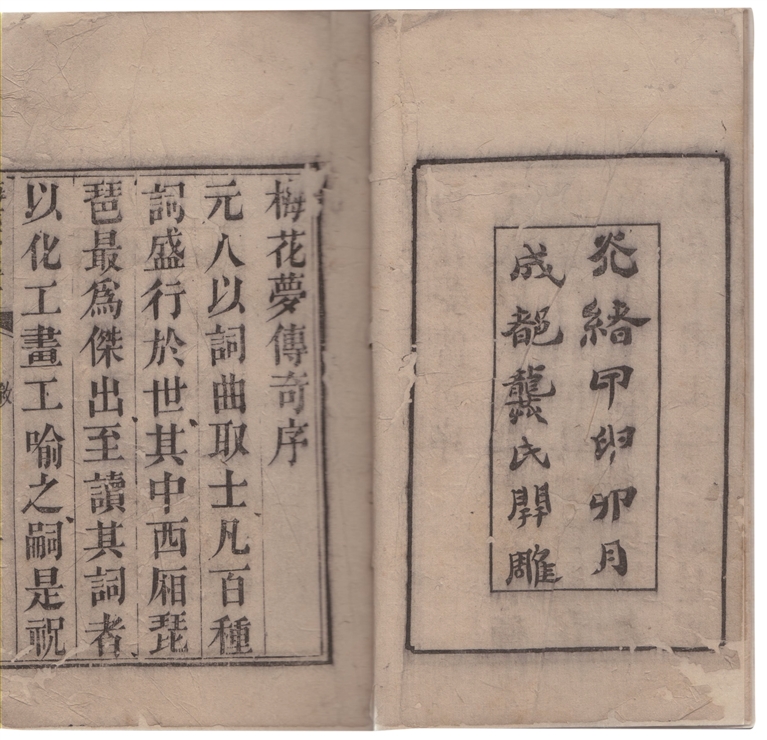 光緒甲申卯月
成都龔氏開雕
梅花夢傳奇序
元人以詞曲取士凡百種
詞盛行於世其中西廂琵
琶最爲傑出至讀其詞者
以化工畫工喻之嗣是祝